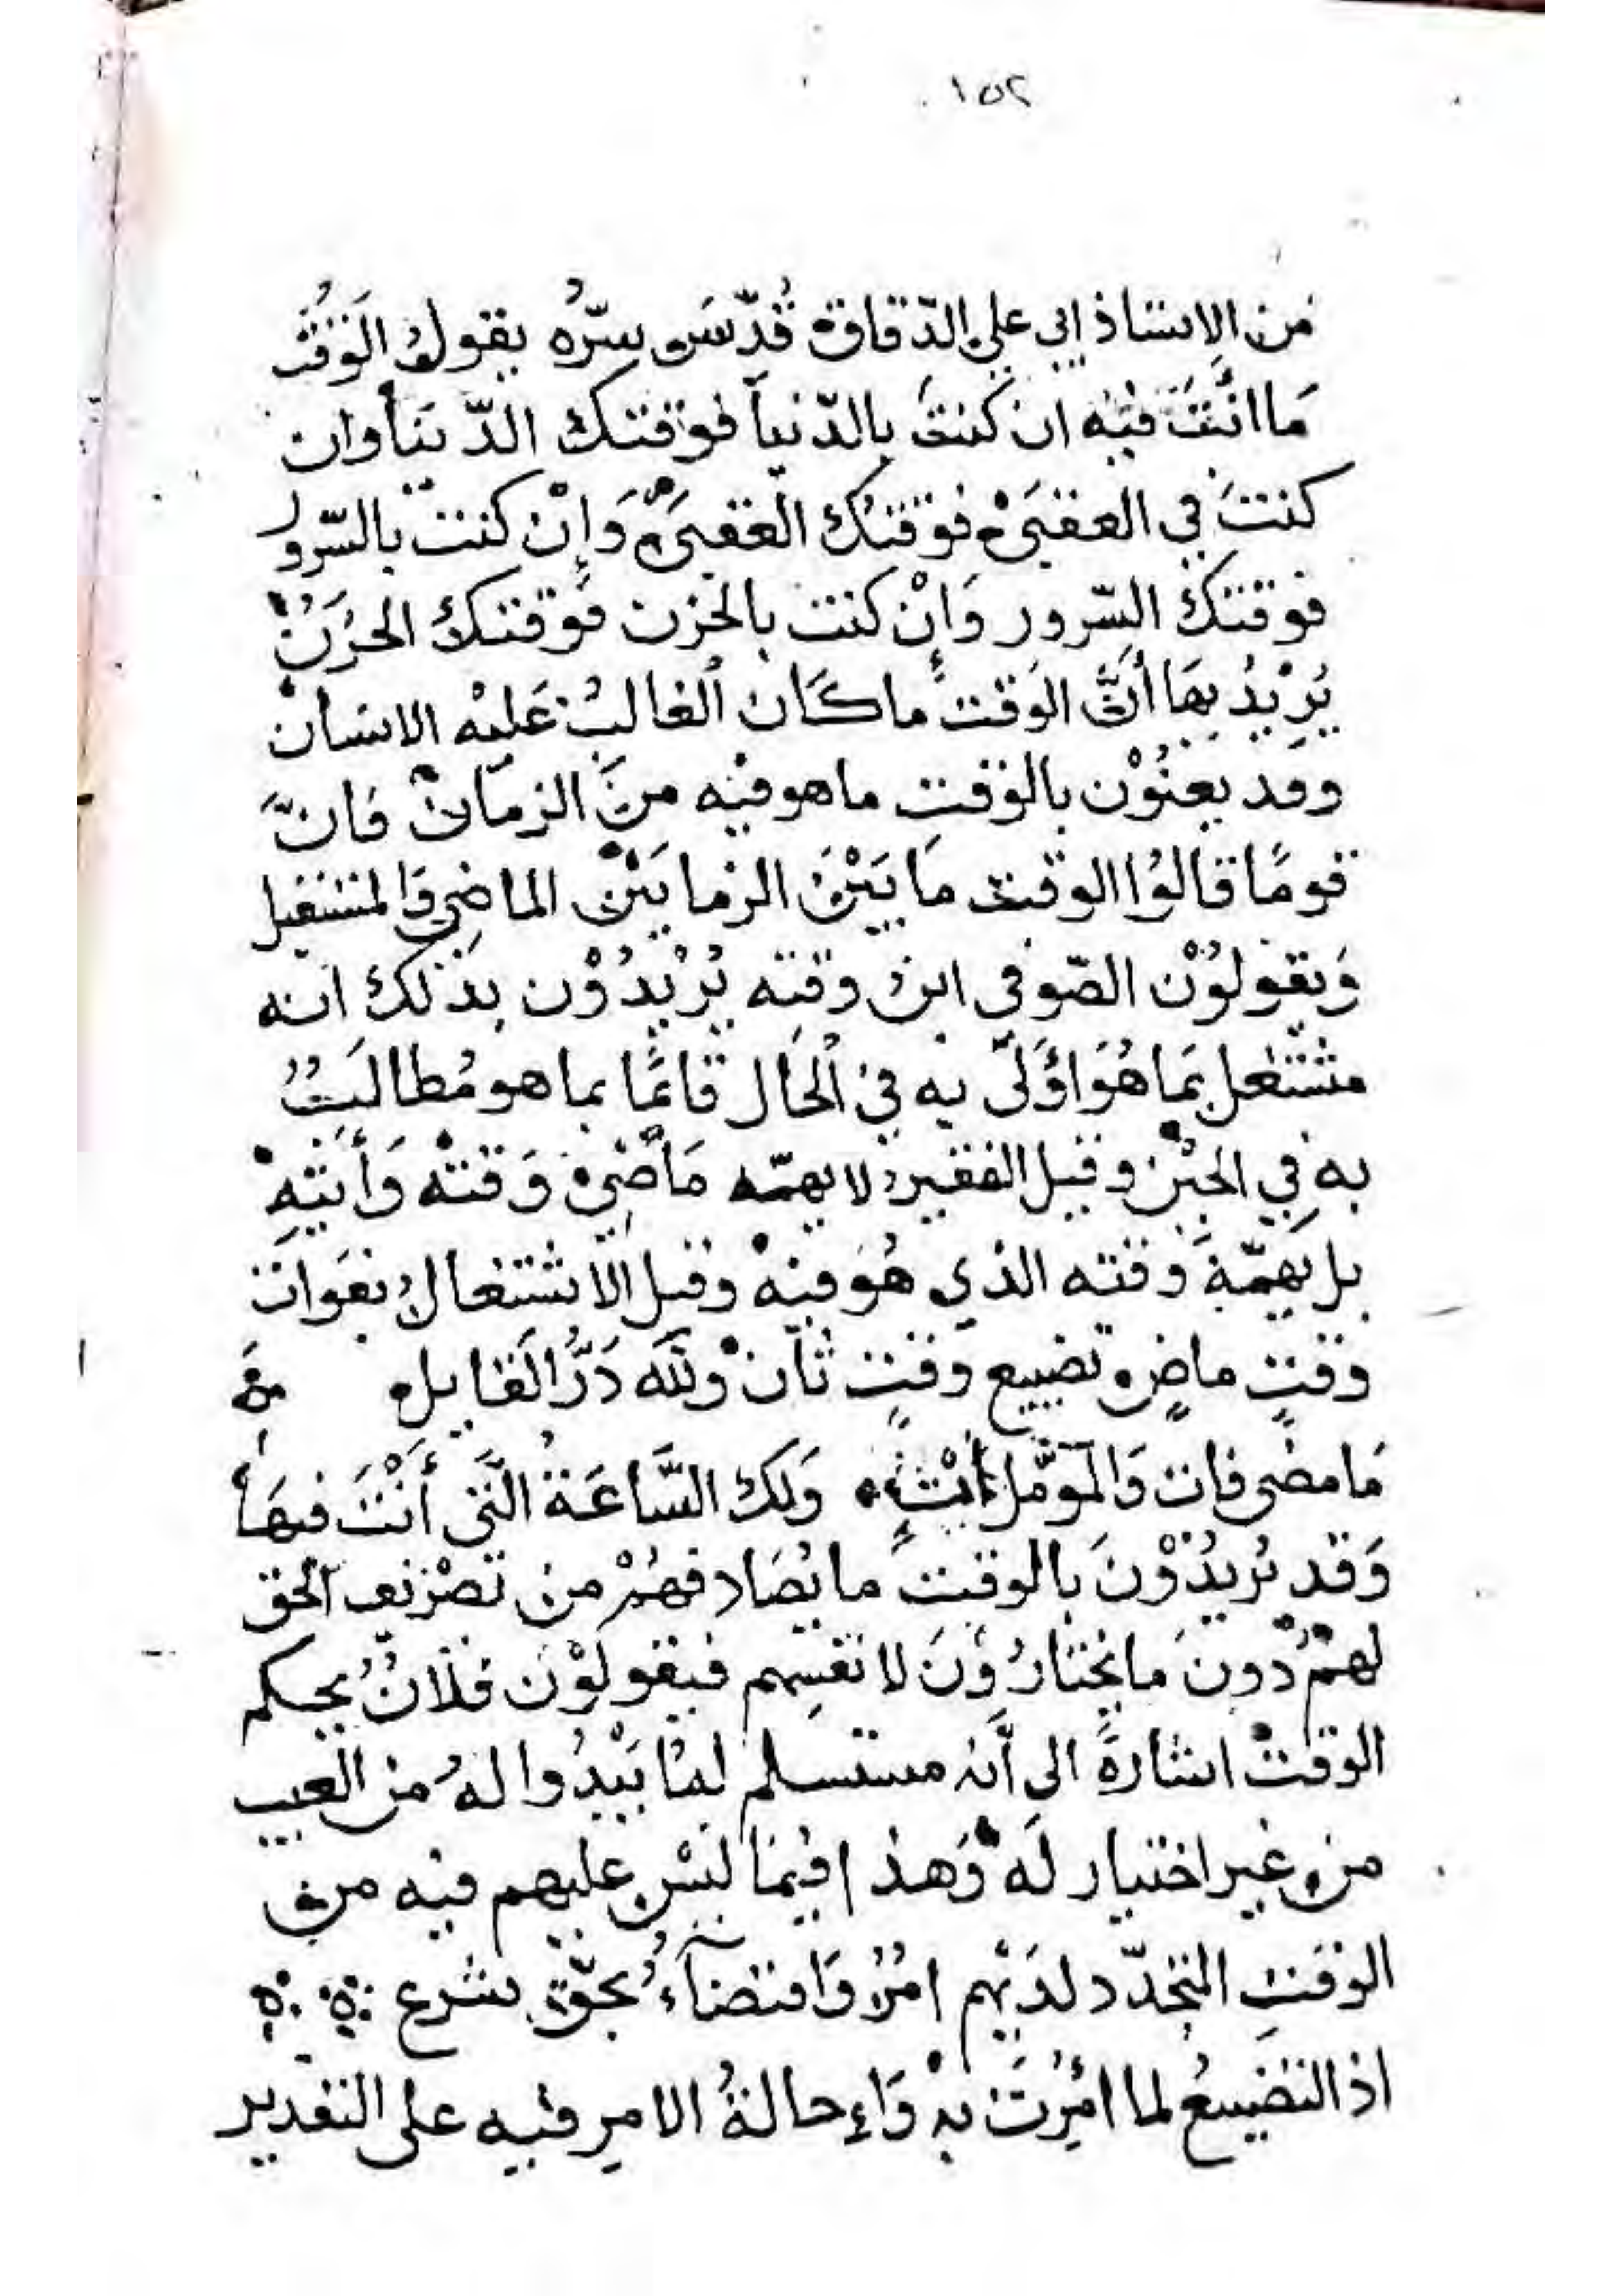 ١٥٢
من الاستاذ ابي علي الدّقاق قُدّسَ سِرُّه يقولُ الوَقْتُ
مَا انْتَ فيْه ان كنتَ بالدّنيا فوقتك الدّنيَا وان
كنتَ في العقبىٰ فوقتك العقبىٰ وَاِنْ كنت بالسّرور
فوقتكَ السّرور وَاِنْ كنت بالحزن فوقتكَ الحُزنُ
يُرِيْدُ بِهَا أَنَّ الوَقت ما كَان الغالبُ عَليْه الانسان
وقد يعنُوْن بالوقتِ ما هو فيْه منَ الزمَان فَانَّ
قومًا قالوُا الوقت مَا بَيْنَ الزمَانَيْن الماضِي وَالمستقبل
وَيقولوُنْ الصّوفى ابن وقته يُرْيدُوْن بذلك انه
مشتغل بمَا هُوَ اوَلىٰ به في اْلحَال قائمًا بما هو مُطالبٌ
به في الحيْن وقيل الفقير لا يهمّه مَاضي وَقته وَأتيْهِ
بل يَهمّهُ وقته الذي هُوَ فيْه وقيل الاشتغال بفوَات
وقتٍ ماضٍ تضييع وقتٍ ثان وللّه دَرُّ القايل
مَا مضى فات وَالموَمَّل غيْبٌ وَلك السَّاعَةُ الَّتى أَنْتَ فيهَا
وَقد يُريدُوْنَ بالوقتَ ما يُصَادفهُمْ من تصْريف الحق
لهمْ دُونَ ما يختارُوْنَ لانفسِهم فيقولوْنَ فلانٌ بحكم
الوقتْ اشارةً الى أَنه مستسلم لمَا يَبْدُوا لهُ من الغيب
من غير اختيار لَه وَهذا فيمَا ليْس عليهم فيه من
الوقتِ المتجدّد لدَيْهم امْرٌ وَاقتضآءُ بحقّ شرع
اذ التضييعُ لما امُرْتَ بهْ وَاِحالةُ الامرِ فيه على التقدير